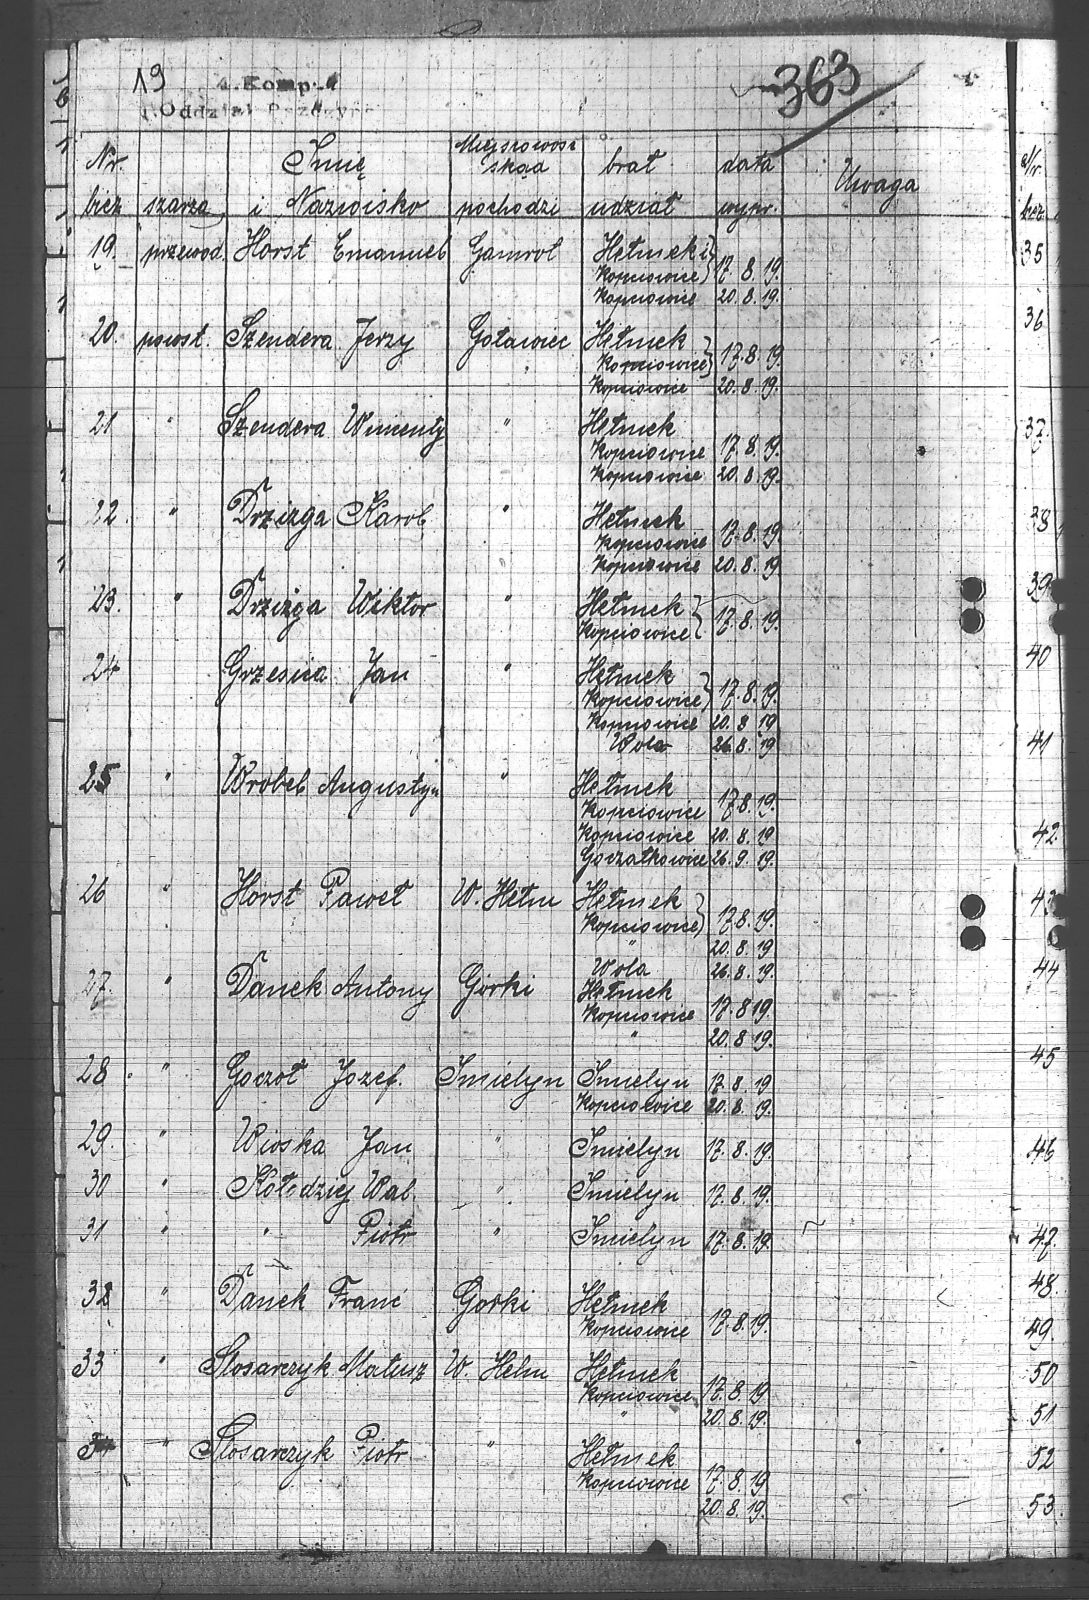 19 4. Komp. 363
I. Oddział Pszczyn
Nr. Imię Miejscowość brał data Uwaga
skąd
bież szarza i Nazwisko pochodzi udział wypr.
19. przewod. Horst Emanuel Gamrot Hełmeki
Kopciowice 17.8.19.
Kopciowice 20.8.19.
20. powst. Szendera Jerzy Goławiec Hełmek
Kopciowice 17.8.19.
Kopciowice 20.8.19.
21 " Szendera Wincenty " Hełmek
Kopciowice 17.8.19.
Kopciowice 20.8.19.
22. " Drzizga Karol " Hełmek
Kopciowice 17.8.19.
Kopciowice 20.8.19.
23. " Drzizga Wiktor " Hełmek
Kopciowice 17.8.19.
24 " Grzesica Jan " Hełmek
Kopciowice 17.8.19.
Kopciowice 20.8.19
Wola 26.8.19
25 " Wrobel Augustyn " Hełmek
Kopciowice 17.8.19.
Kopciowice 20.8.19
Goczałkowice 26.9.19.
26 " Horst Paweł W. Hełm Hełmek
Kopciowice 17.8.19.
" 20.8.19
Wola 26.8.19.
27. " Danek Antony Górki Hełmek
Kopciowice 17.8.19.
" 20.8.19.
28. " Goczoł Jozef. Imielyn Imielyn 17.8.19
Kopciowice 20.8.19.
29. " Wioska Jan " Imielyn 17.8.19.
30 " Kołodziej Wal. " Imielyn 17.8.19.
31 " " Piotr " Imielyn 17.8.19.
32 " Danek Franc Gorki Hełmek
Kopciowice 17.8.19.
33 " Slosarczyk Matusz W. Hełm Hełmek
Kopciowice 17.8.19
" 20.8.19.
" Slosarczyk Piotr " Hełmek
Kopciowice 17.8.19
20.8.19.
Nr.
bież.
35
36
37.
38
39
40
41
42.
43
44
45
46
47.
48.
49.
50
51
52
53.